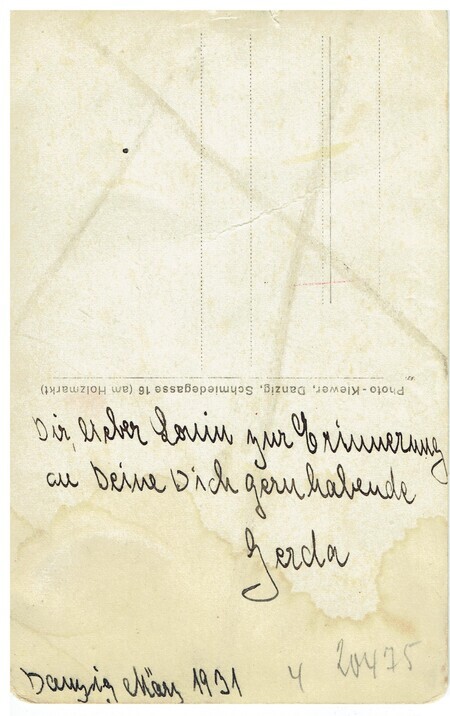 Photo-Klewer, Danzig, Schmiedegasse 16 (am Holzmarkt)
Dir, lieber zur Erinnerung
an Deine Dich gernhabende
Gerda
Danzig März 1931
4 20475